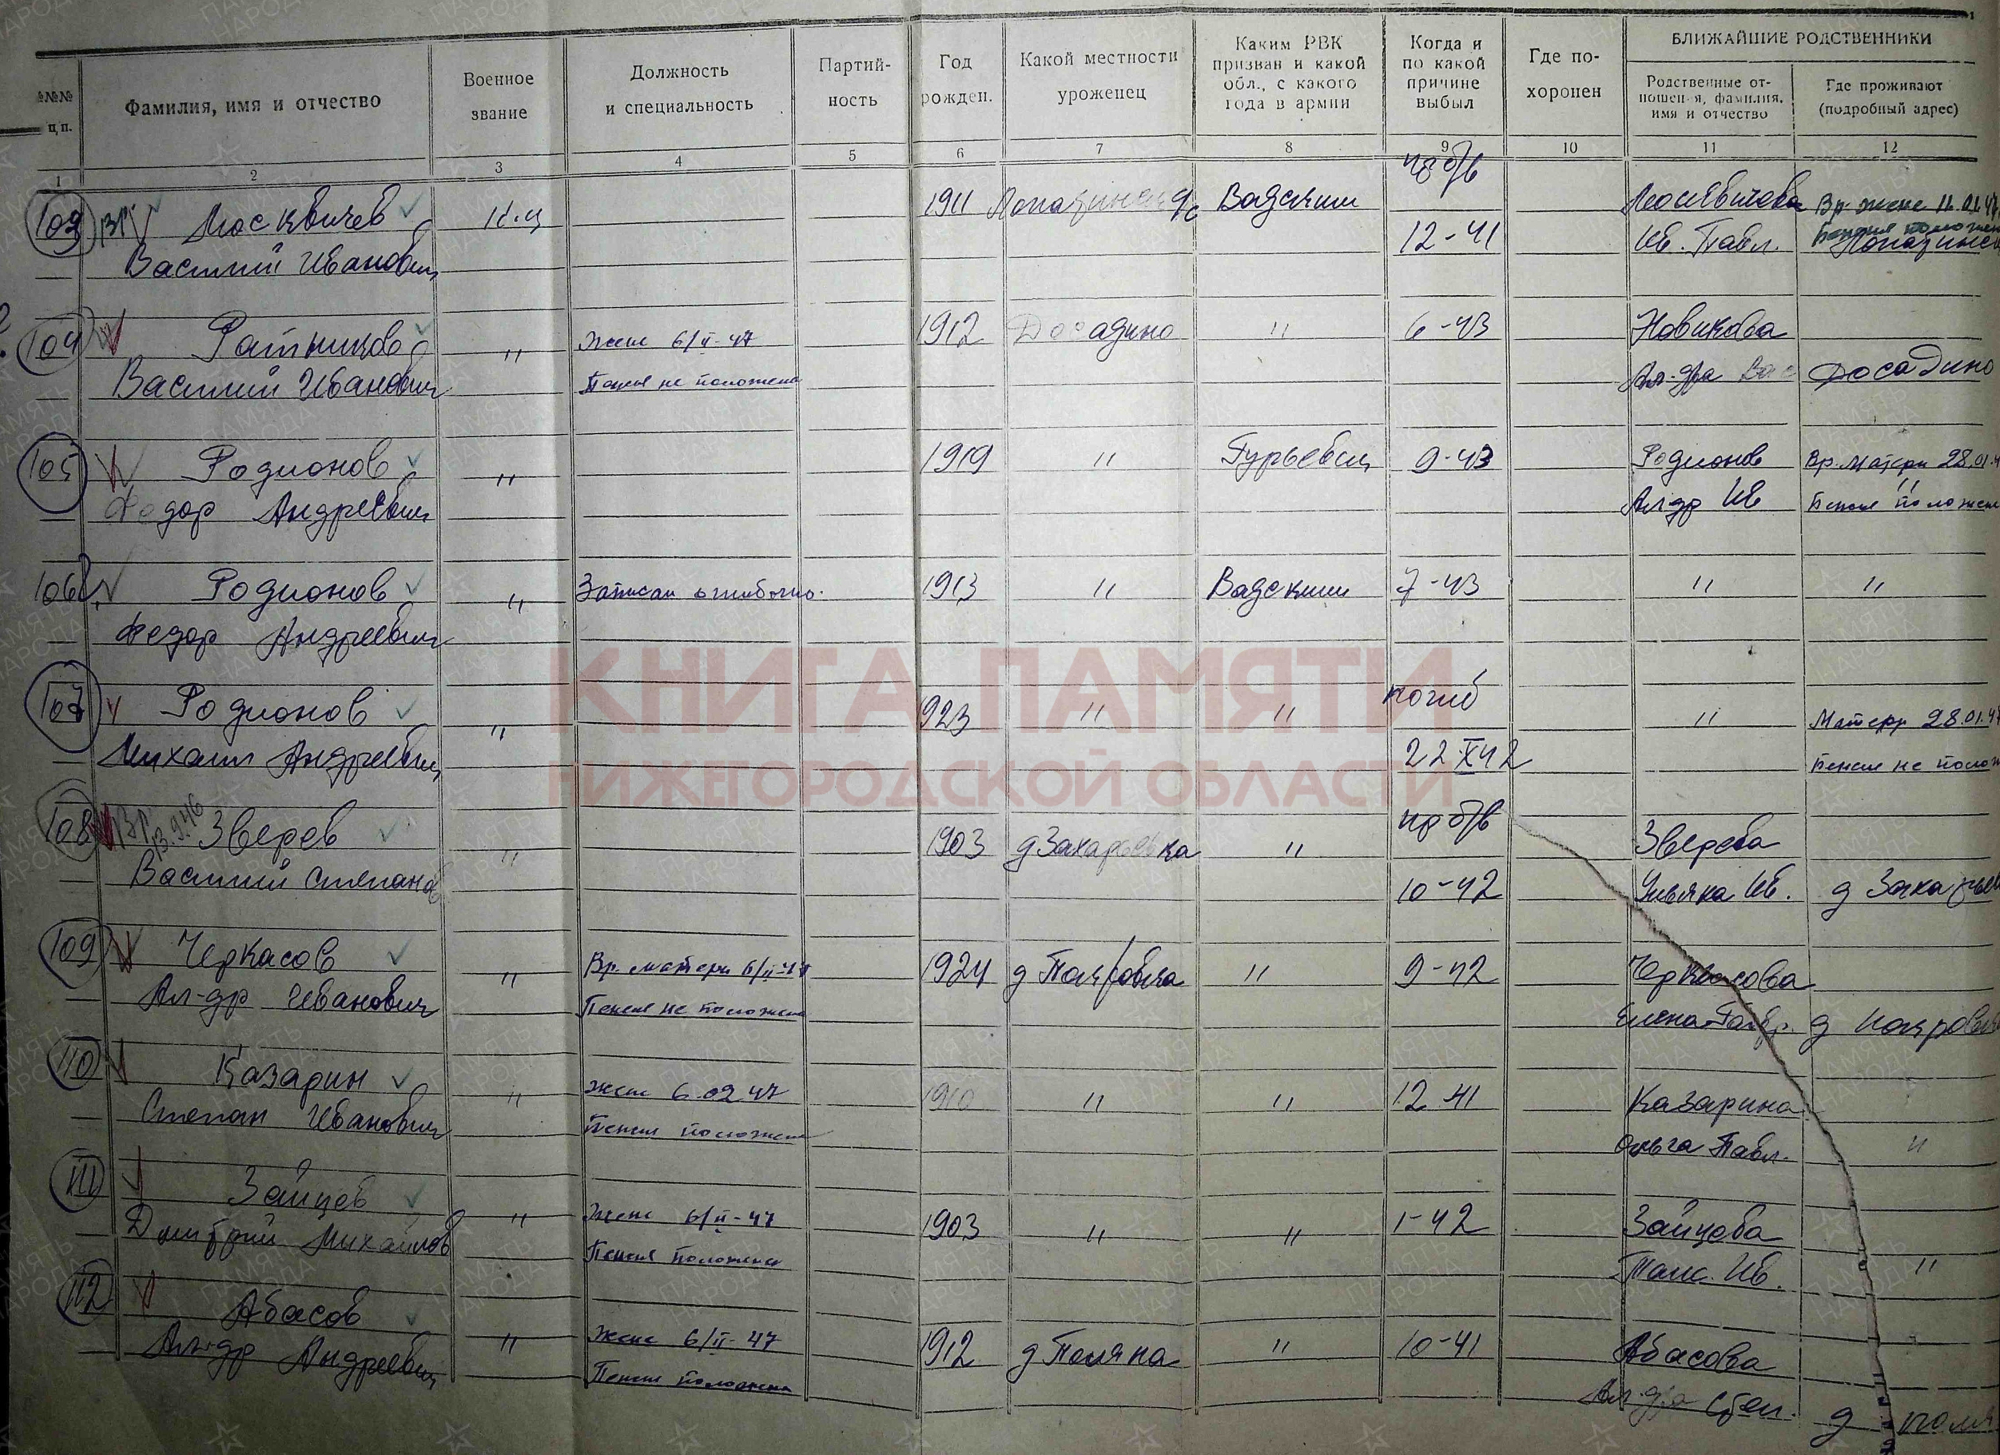 БЛИЖАЙШИЕ РОДСТВЕННИКИ
№№№ п.п.
Фамилия, имя и отчество
Военное звание
Должность и специальность
Партий-ность
Год рожден.
Какой местности уроженец
Каким РВК призван и какой обл., с какого года в армии
Когда и по какой причине выбыл
Где по-хоронен
Родственные от-ношения, фамилия, имя и отчество
Где проживают (подробный адрес)
1 2 3 4 5 6 7 8 9 10 11 12
пр б/в
103 Москвичев 1911 Вадским Москвичева Вр. жене 11.01.47
Василий Иванович 12-41 Ив. Павл.
104 Ратников " жене 6/II-47 1912 Досадино " 6-43 Новикова
Василий Иванович Пенсия не положена Ал-дра Вас Досадино
105 Родионов " 1919 " Гурьевск 9-43 Родионов Вр. матери 28.01.4
Федор Андреевич Ал-др Ив "
106 Родионов " Записан ошибочно. 1913 " Вадским 7-43 " "
Федор Андреевич
погиб
107 Родионов " 923 " " " Матери 28.01.47
Михаил Андреевич 22.XI42
пр б/в
108 ВР. 13.9.46 Зверев " 1903 д Захарьевка " Зверева
Василий Степанов 10-42 Ульяна Ив. д Захарьев
109 Черкасов " Вр. матери 6/II-47 1924 " 9-42 Черкасова
Ал-др Иванович Пенсия не положена Елена д
110 Казарин " жене 6.02.47 1910 " " 12-41 Казарина
Степан Иванович Пенсия положена Ольга Павл. "
111 Зайцев " жене 6/II-47 1903 " " 1-42 Зайцева
Дмитрий Михайлов Пенсия положена Ив. "
112 Абасов " жене 6/II-47 1912 д Поляна " 10-41 Абасова
Ал-др Андреевич Пенсия положена Ал-дра д поля
КНИГА ПАМЯТИ
НИЖЕГОРОДСКОЙ ОБЛАСТИ
ПАМЯТЬ НАРОДА